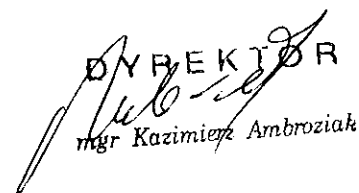 DYREKTOR
mgr Kazimierz Ambroziak